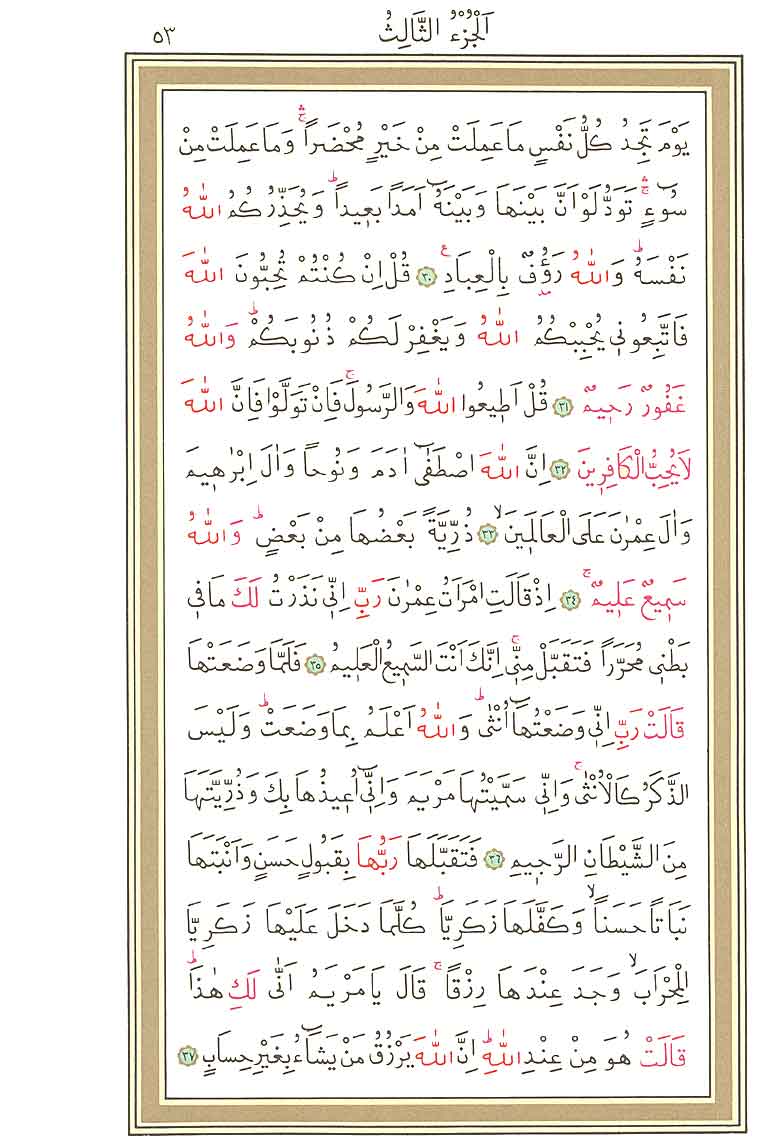 اَلْجُزْءُ الثَّالِثُ ٥٣
يَوْمَ تَجِدُ كُلُّ نَفْسٍ مَا عَمِلَتْ مِنْ خَيْرٍ مُحْضَراًۚۛ وَمَا عَمِلَتْ مِنْ
سُٓوءٍۚۛ تَوَدُّ لَوْ اَنَّ بَيْنَهَا وَبَيْنَهُٓ اَمَداً بَع۪يداًۜ وَيُحَذِّرُكُمُ اللّٰهُ
نَفْسَهُۜ وَاللّٰهُ رَؤُ۫فٌ بِالْعِبَادِ۟ ﴿٣٠﴾ قُلْ اِنْ كُنْتُمْ تُحِبُّونَ اللّٰهَ
فَاتَّبِعُون۪ي يُحْبِبْكُمُ اللّٰهُ وَيَغْفِرْ لَكُمْ ذُنُوبَكُمْۜ وَاللّٰهُ
غَفُورٌ رَح۪يمٌ ﴿٣١﴾ قُلْ اَط۪يعُوا اللّٰهَ وَالرَّسُولَۚ فَاِنْ تَوَلَّوْا فَاِنَّ اللّٰهَ
لَا يُحِبُّ الْكَافِر۪ينَ ﴿٣٢﴾ اِنَّ اللّٰهَ اصْطَفٰٓى اٰدَمَ وَنُوحاً وَاٰلَ اِبْرٰه۪يمَ
وَاٰلَ عِمْرٰنَ عَلَى الْعَالَم۪ينَۙ ﴿٣٣﴾ ذُرِّيَّةً بَعْضُهَا مِنْ بَعْضٍۜ وَاللّٰهُ
سَم۪يعٌ عَل۪يمٌۚ ﴿٣٤﴾ اِذْ قَالَتِ امْرَاَتُ عِمْرٰنَ رَبِّ اِنّ۪ي نَذَرْتُ لَكَ مَا ف۪ي
بَطْن۪ي مُحَرَّراً فَتَقَبَّلْ مِنّ۪يۚ اِنَّكَ اَنْتَ السَّم۪يعُ الْعَل۪يمُ ﴿٣٥﴾ فَلَمَّا وَضَعَتْهَا
قَالَتْ رَبِّ اِنّ۪ي وَضَعْتُهَٓا اُنْثٰىۜ وَاللّٰهُ اَعْلَمُ بِمَا وَضَعَتْۜ وَلَيْسَ
الذَّكَرُ كَالْاُنْثٰىۚ وَاِنّ۪ي سَمَّيْتُهَا مَرْيَمَ وَاِنّ۪ٓي اُع۪يذُهَا بِكَ وَذُرِّيَّتَهَا
مِنَ الشَّيْطَانِ الرَّج۪يمِ ﴿٣٦﴾ فَتَقَبَّلَهَا رَبُّهَا بِقَبُولٍ حَسَنٍ وَاَنْبَتَهَا
نَبَاتاً حَسَناًۙ وَكَفَّلَهَا زَكَرِيَّاۜ كُلَّمَا دَخَلَ عَلَيْهَا زَكَرِيَّا
الْمِحْرَابَۙ وَجَدَ عِنْدَهَا رِزْقاًۚ قَالَ يَا مَرْيَمُ اَنّٰى لَكِ هٰذَاۜ
قَالَتْ هُوَ مِنْ عِنْدِ اللّٰهِۜ اِنَّ اللّٰهَ يَرْزُقُ مَنْ يَشَٓاءُ بِغَيْرِ حِسَابٍ ﴿٣٧﴾